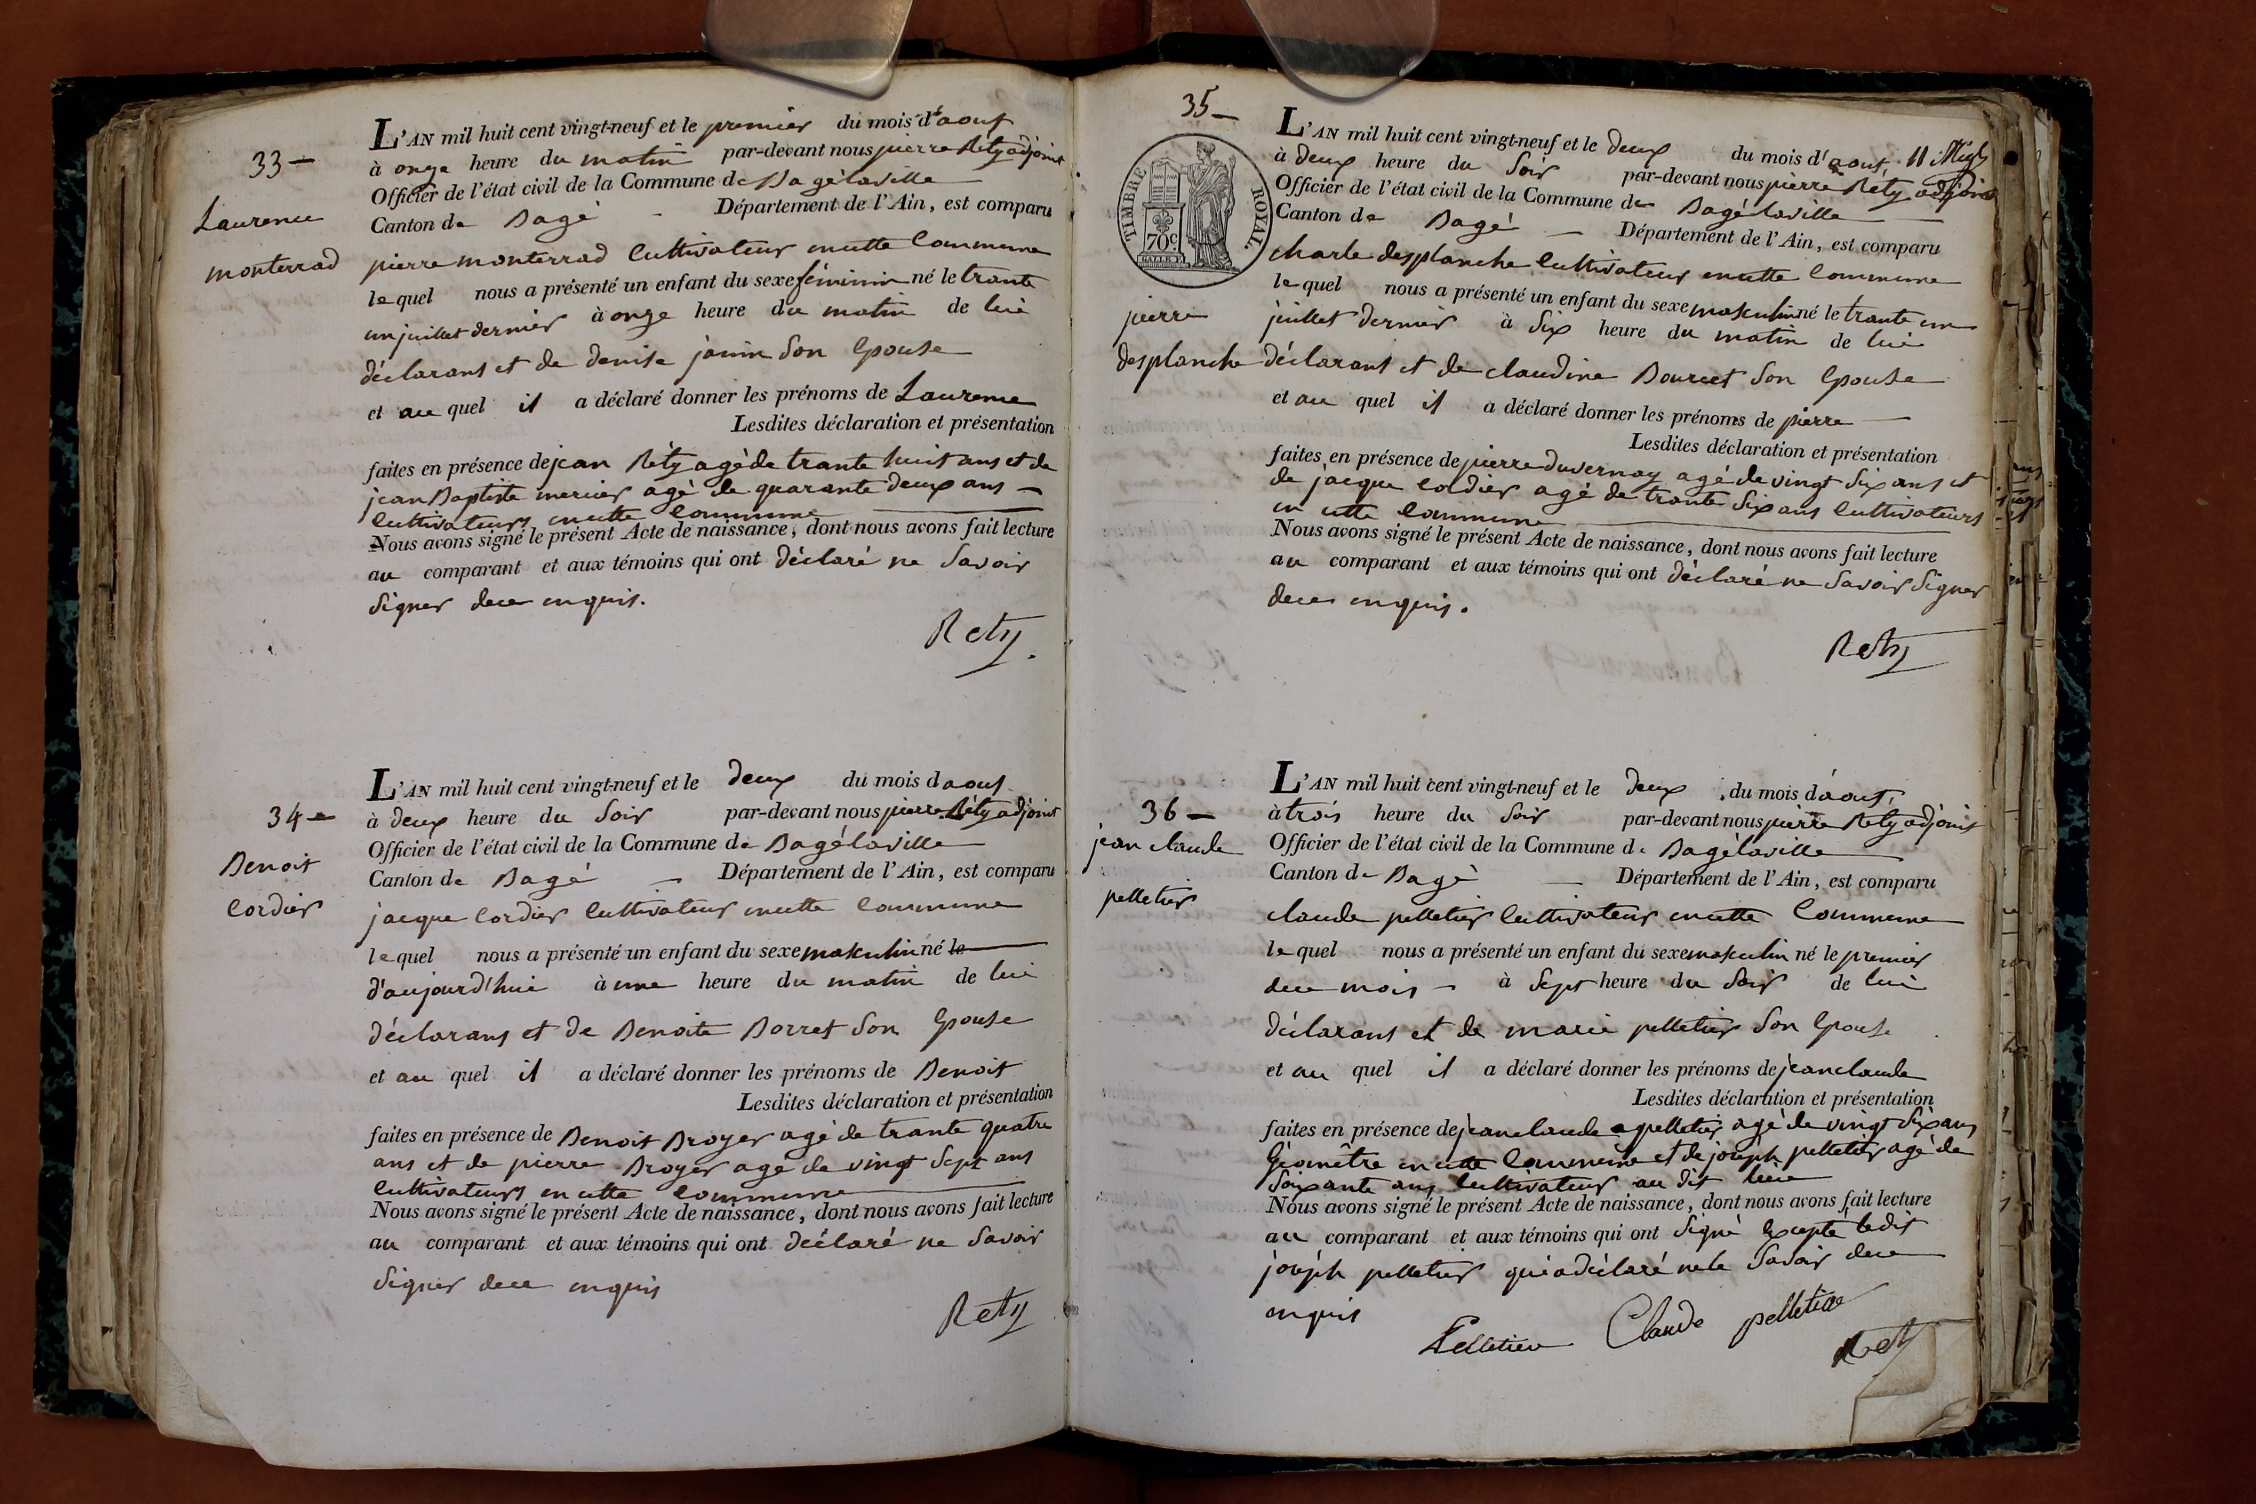 33 —
Laurence
monterrad
L'AN mil huit cent vingt-neuf et le premier du mois d'aout
à onze heure du matin par-devant nous pierre Réty adjoint
Officier de l'état civil de la Commune de Bagélaville
Canton de Bagé Département de l'Ain, est comparu
pierre monterrad cultivateur en cette commune
lequel nous a présenté un enfant du sexe féminin né le trante
un juillet dernier à onze heure du matin de lui
déclarant et de denise janin son epouse
et au quel il a déclaré donner les prénoms de Laurence
Lesdites déclaration et présentation
faites en présence de jean Réty agé de trante huit ans et de
jean Baptiste mercier agé de quarante deux ans —
cultivateurs en cette commune
Nous avons signé le présent Acte de naissance, dont nous avons fait lecture
au comparant et aux témoins qui ont déclaré ne savoir
signer dece enquis.
Rety
34 —
Benoit
Cordier
L'AN mil huit cent vingt-neuf et le deux du mois d aout
à deux heure du soir par-devant nous pierre Réty adjoint
Officier de l'état civil de la Commune de Bagélaville
Canton de Bagé — Département de l'Ain, est comparu
jacque Cordier cultivateur en cette commune
lequel nous a présenté un enfant du sexe maskulin né le
d'aujourd'hui à une heure du matin de lui
déclarant et de Benoite Borret son epouse
et au quel il a déclaré donner les prénoms de Benoit
Lesdites déclaration et présentation
faites en présence de Benoit Broyer agé de trante quatre
ans et de pierre Broyer agé de vingt sept ans
cultivateurs en cette commune
Nous avons signé le présent Acte de naissance, dont nous avons fait lecture
au comparant et aux témoins qui ont déclaré ne savoir
signer dece enquis
Rety
35 —
TIMBRE ROYAL
70 c
pierre
desplanche
L'AN mil huit cent vingt-neuf et le deux du mois d'aout
à deux heure du soir par-devant nous pierre Réty adjoint
Officier de l'état civil de la Commune de Bagélaville
Canton de Bagé — Département de l'Ain, est comparu
charle desplanche cultivateur en cette commune
lequel nous a présenté un enfant du sexe maskulin né le trante un
juillet dernier à six heure du matin de lui
déclarant et de claudine Bourcet son epouse
et au quel il a déclaré donner les prénoms de pierre
Lesdites déclaration et présentation
faites en présence de pierre duvernay agé de vingt six ans et
de jacque cordier agé de trante six ans cultivateurs
en cette commune
Nous avons signé le présent Acte de naissance, dont nous avons fait lecture
au comparant et aux témoins qui ont déclaré ne savoir signer
dece enquis.
Rety
36 —
jean claude
pelletier
L'AN mil huit cent vingt-neuf et le deux du mois d'aout
à trois heure du soir par-devant nous pierre Rety adjoint
Officier de l'état civil de la Commune de Bagélaville
Canton de Bagé — Département de l'Ain, est comparu
claude pelletier cultivateur en cette commune
lequel nous a présenté un enfant du sexe maskulin né le premier
dece mois — à sept heure du soir de lui
déclarant et de marie pelletier son epouse
et au quel il a déclaré donner les prénoms de jean claude
Lesdites déclaration et présentation
faites en présence de jean claude pelletier agé de vingt six ans
Géomètre en cette commune et de joseph pelletier agé de
soixante ans cultivateur au dit lieu
Nous avons signé le présent Acte de naissance, dont nous avons fait lecture
au comparant et aux témoins qui ont signé excepté ledit
joseph pelletier qui a déclaré ne le savoir dece
enquis
Pelletier Claude pelletier
Rety